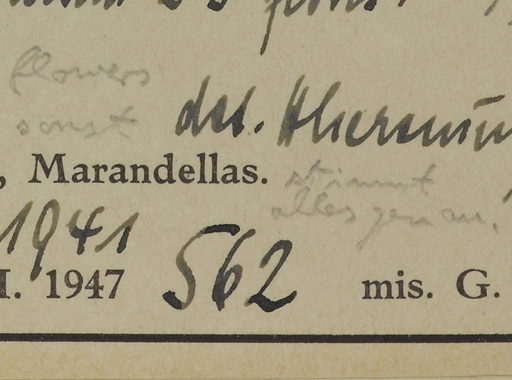 flowers
sonst
det.
, Marandellas. stimmt
alles genau.
1941
I. 1947 562 mis. G.